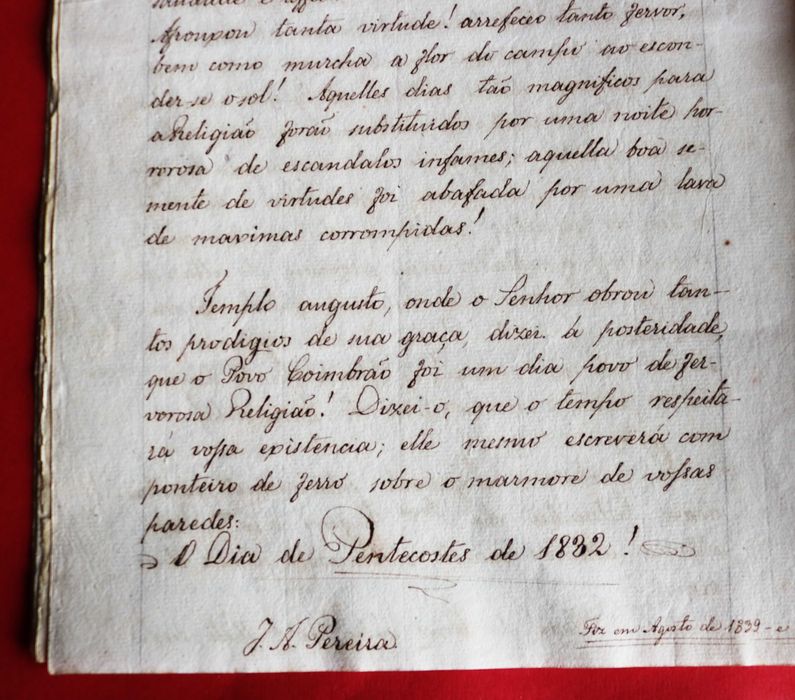 Afroupou tanta virtude! arrefeceo tanto fervor,
bem como murcha a flor do campo ao escon-
der-se o sol! Aquelles dias tão magnificos para
a Religião forão substituidos por uma noite hor-
rorosa de escandalos infames; aquella boa se-
mente de virtudes foi abafada por uma lava
de maximas corrompidas!
Templo augusto, onde o Senhor obrou tan-
tos prodigios de sua graça, dizei á posteridade,
que o Povo Coimbrão foi um dia povo de fer-
vorosa Religião! Dizei-o, que o tempo respeita-
rá vossa existencia; elle mesmo escreverá com
ponteiro de ferro sobre o marmore de vossas
paredes:
O Dia de Pentecostes de 1832!
J. A. Pereira
Foz em Agosto de 1839 - e